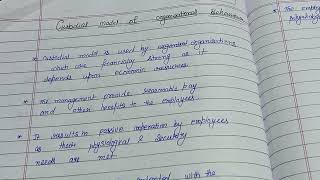 Custodial model of organisational Behaviour
* Custodial model is used by organisations
which are financialy strong as it
depends upon economic resources
* The management provide reasonable pay
and other benefits to the employees.
* It results in passive cooperation by employees
as their physiological & Security
needs are met
with the
* The employ